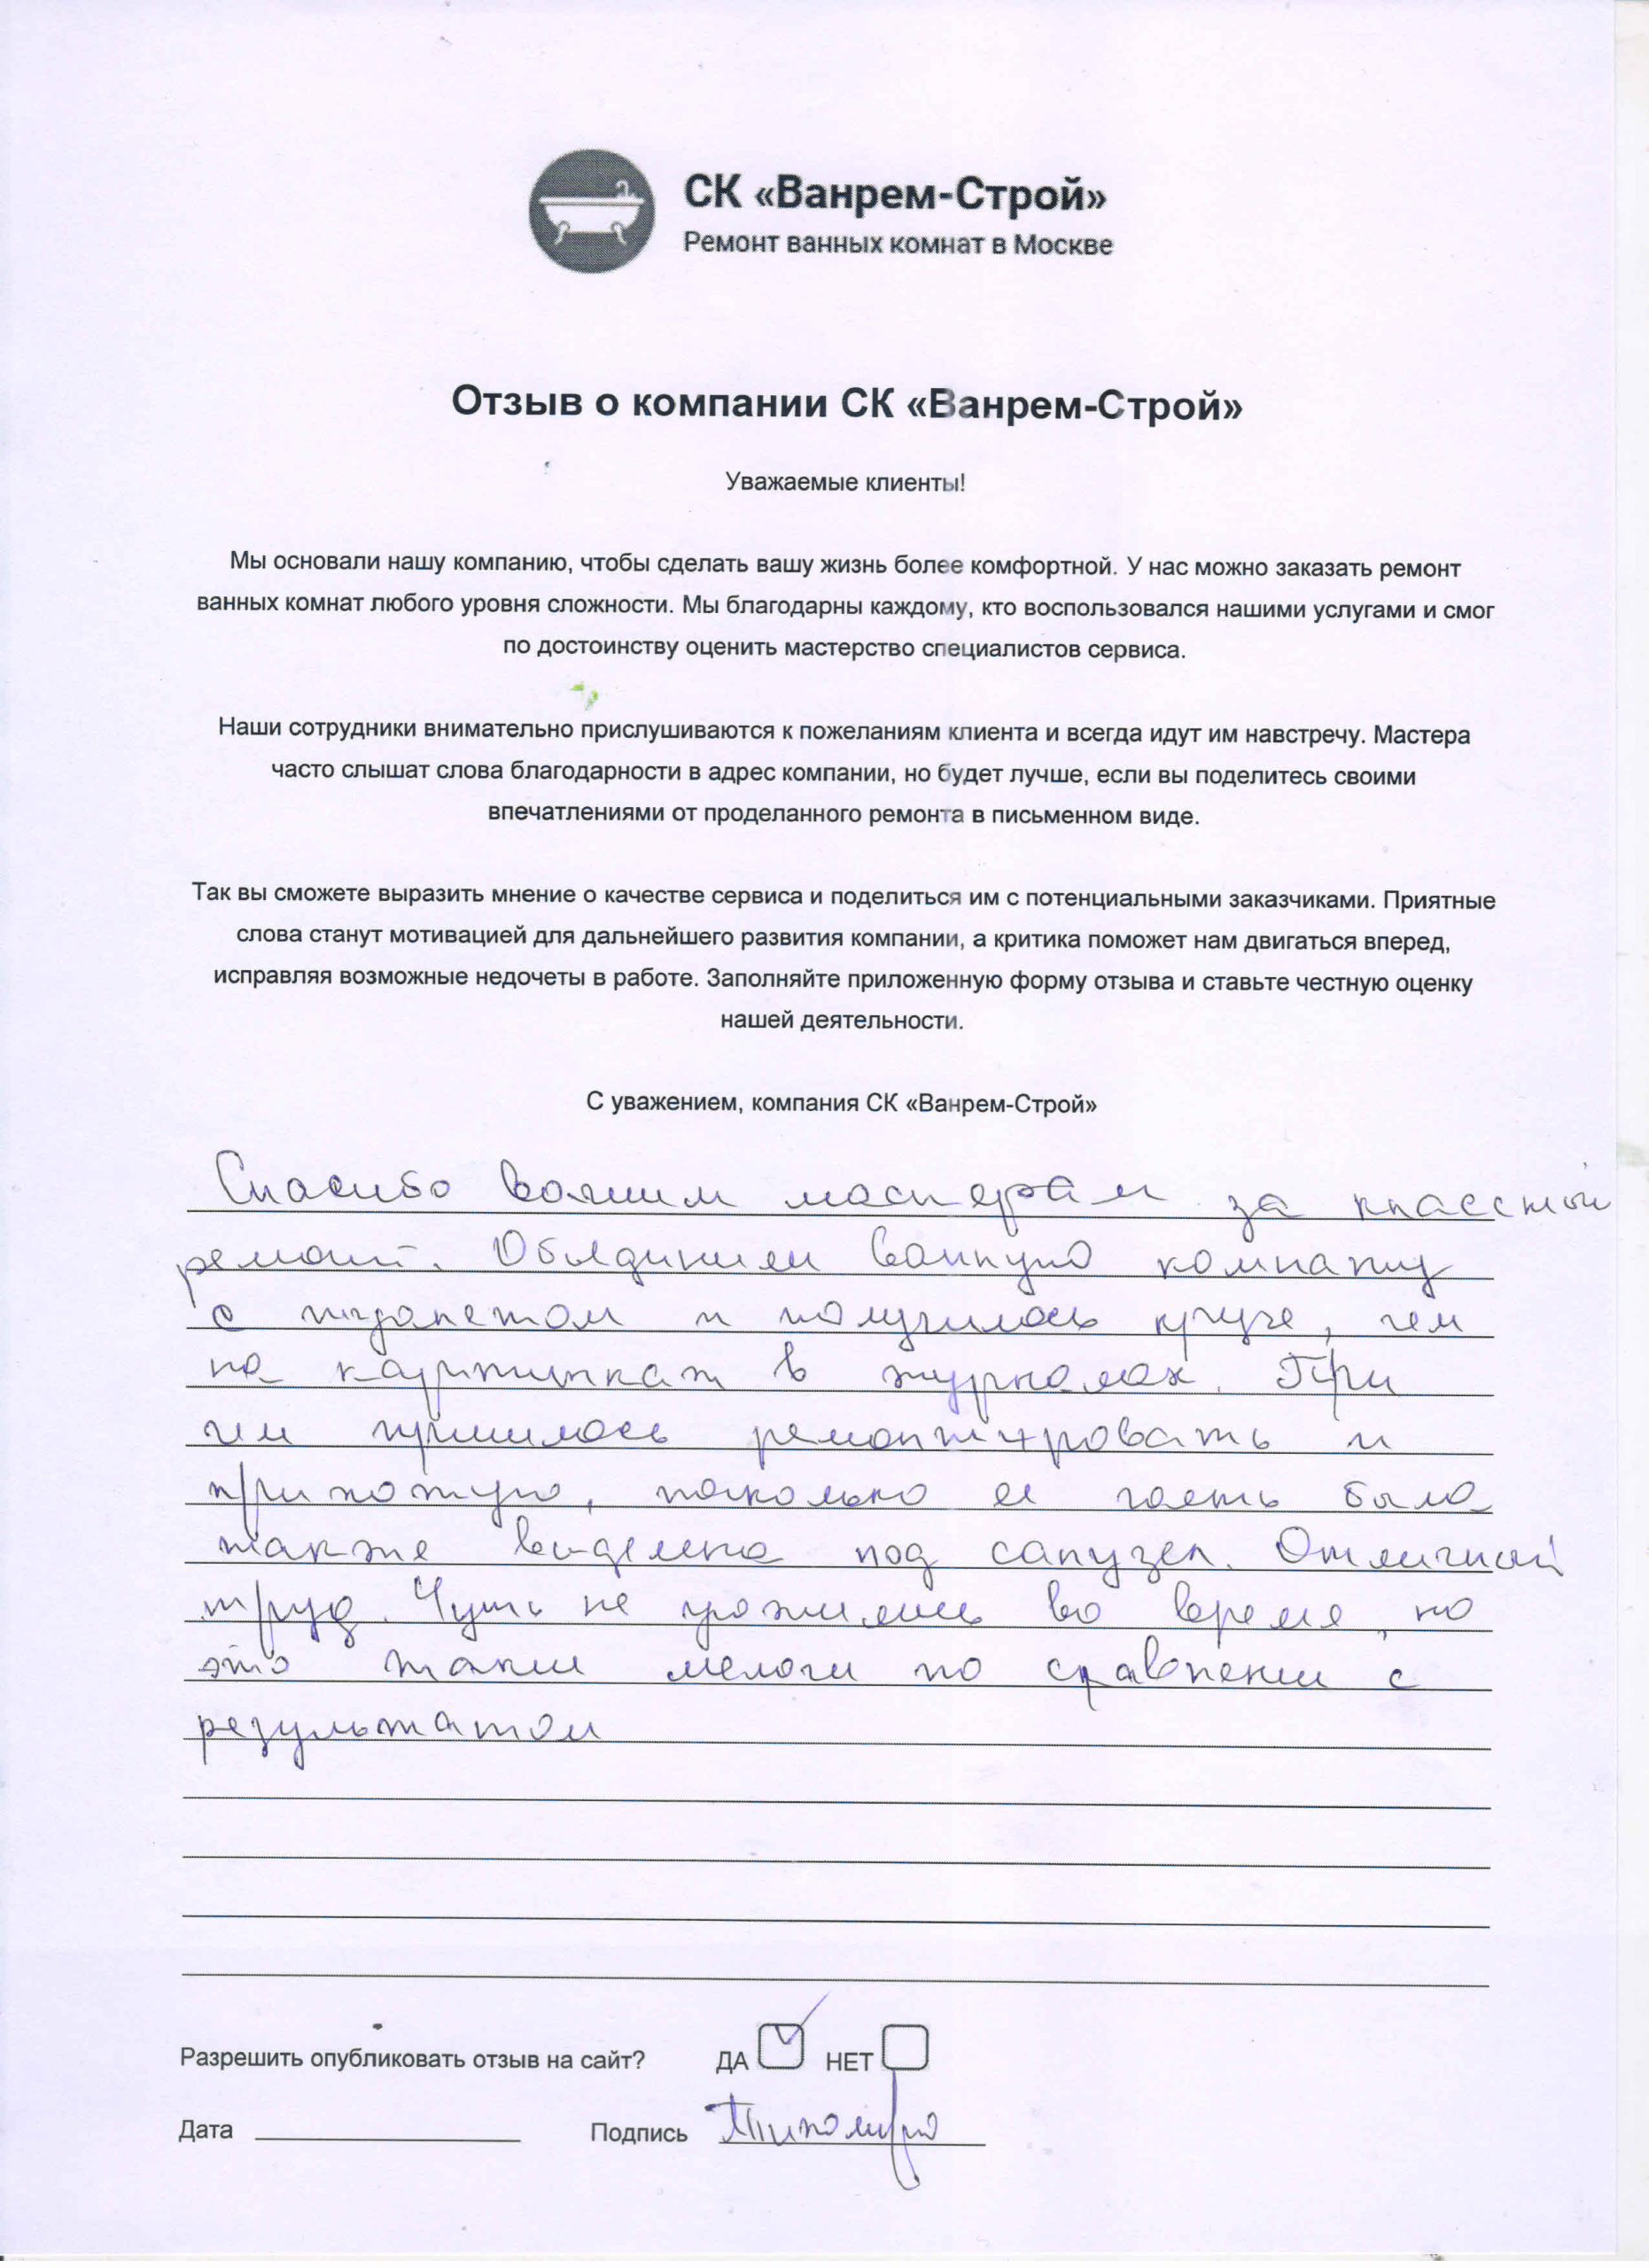 СК «Ванрем-Строй»
Ремонт ванных комнат в Москве
Отзыв о компании СК «Ванрем-Строй»
Уважаемые клиенты!
Мы основали нашу компанию, чтобы сделать вашу жизнь более комфортной. У нас можно заказать ремонт
ванных комнат любого уровня сложности. Мы благодарны каждому, кто воспользовался нашими услугами и смог
по достоинству оценить мастерство специалистов сервиса.
Наши сотрудники внимательно прислушиваются к пожеланиям клиента и всегда идут им навстречу. Мастера
часто слышат слова благодарности в адрес компании, но будет лучше, если вы поделитесь своими
впечатлениями от проделанного ремонта в письменном виде.
Так вы сможете выразить мнение о качестве сервиса и поделиться им с потенциальными заказчиками. Приятные
слова станут мотивацией для дальнейшего развития компании, а критика поможет нам двигаться вперед,
исправляя возможные недочеты в работе. Заполняйте приложенную форму отзыва и ставьте честную оценку
нашей деятельности.
С уважением, компания СК «Ванрем-Строй»
Спасибо вашим мастерам за классный
ремонт. Объединили ванную комнату
с туалетом и получилось круче, чем
на картинках в журналах. При
чем пришлось ремонтировать и
прихожую, поскольку ее часть была
также выделена под санузел. Отличный
труд. Чуть не уложились во время, но
это такие мелочи по сравнении с
результатом
Разрешить опубликовать отзыв на сайт? ДА НЕТ
Дата Подпись